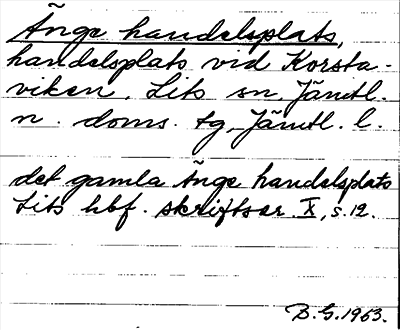 Änge handelsplats,
handelsplats vid Korsta-
viken, Lits sn, Jämtl.
n. doms. tg, Jämtl. l.
det gamla Änge handelsplats
Lits hbf. skriftser. X, s. 12.
B.G. 1963.